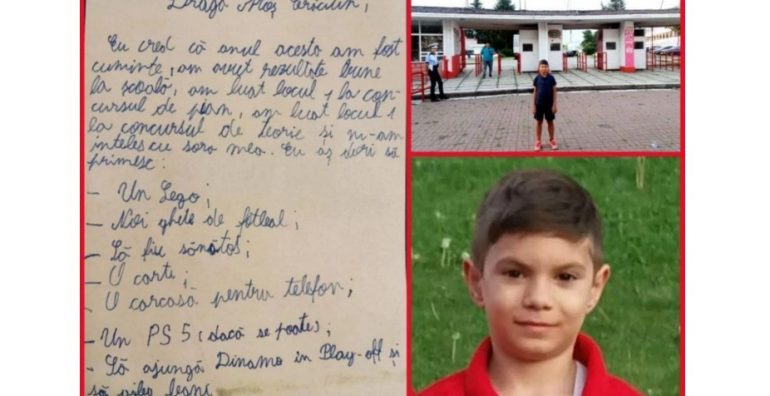 Dragă Moș Crăciun,
Eu cred că anul acesta am fost
cuminte, am avut rezultate bune
la școală, am luat locul 1 la con-
cursul de pian, am luat locul 1
la concursul de teorie și m-am
înteles cu sora mea. Eu aș dori să
primesc:
- Un Lego;
- Noi ghete de fotbal;
- Să fiu sănătos;
- O carte;
- O carcasă pentru telefon;
- Un PS 5 (dacă se poate);
- Să ajungă Dinamo în Play-off și
să